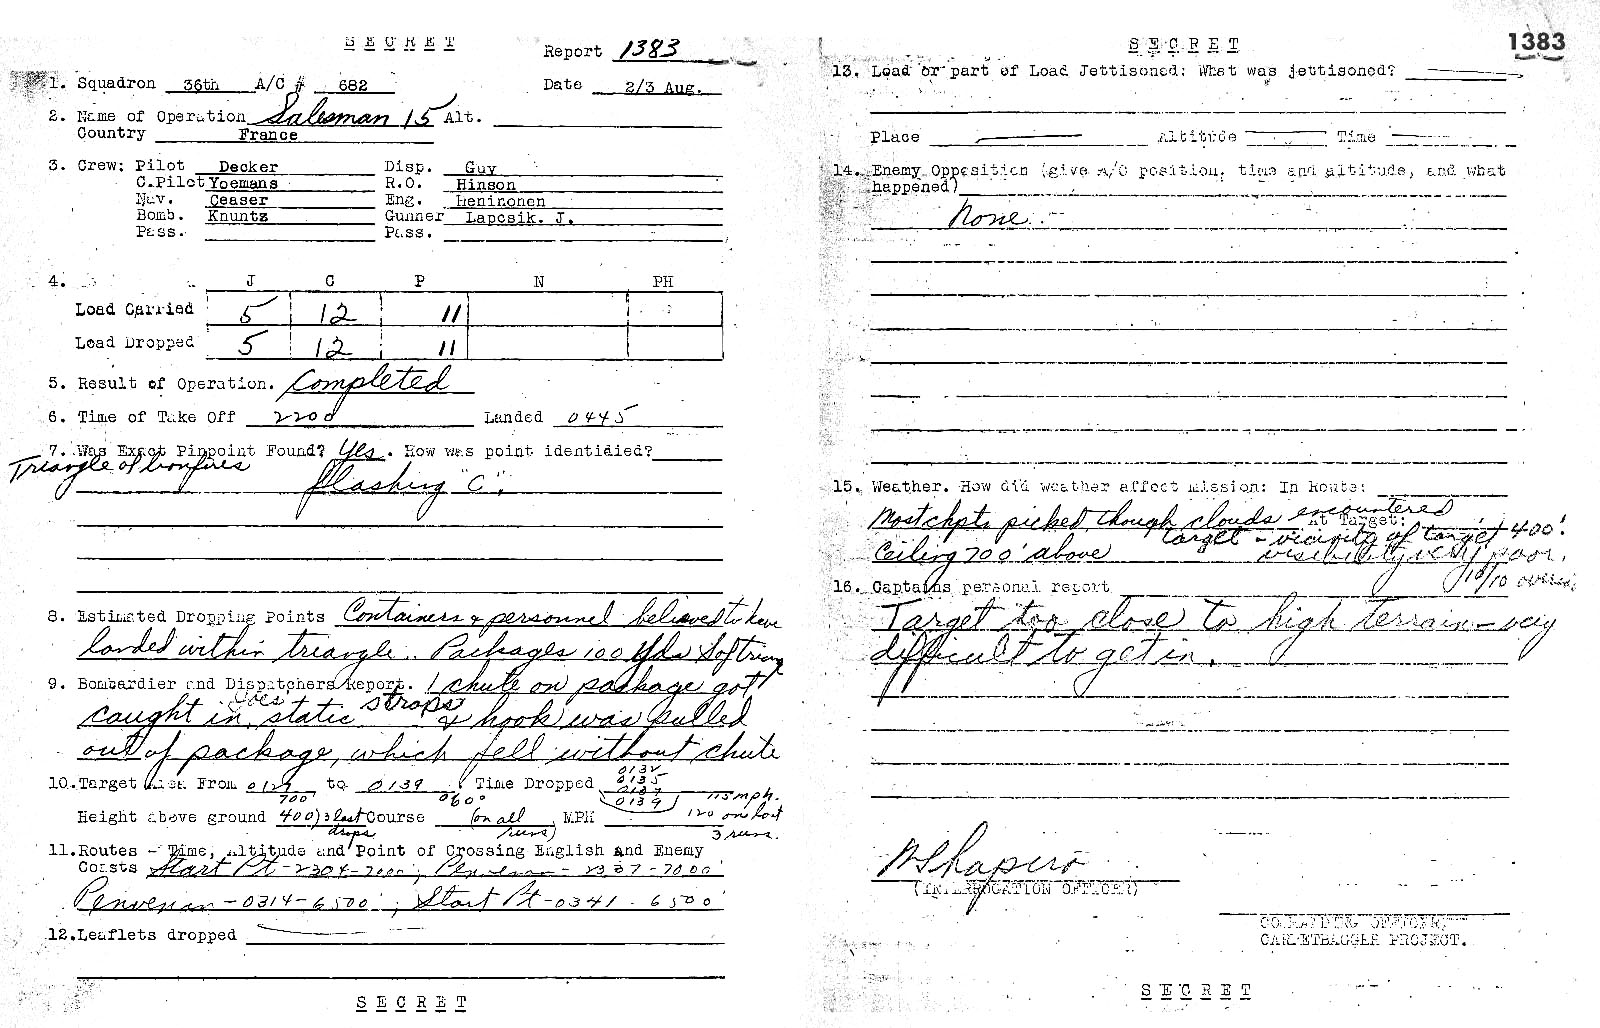 SECRET
Report 1383
1. Squadron 36th A/C # 682 Date 2/3 Aug.
2. Name of Operation Salesman 15 Alt.
Country France
3. Crew: Pilot Decker Disp. Guy
C.Pilot Yoemans R.O. Hinson
Nav. Ceaser Eng. Heninonen
Bomb. Knuntz Gunner Lapcsik. J.
Pass. Pass.
4. J C P N PH
Load Carried 5 12 11
Load Dropped 5 12 11
5. Result of Operation. Completed
6. Time of Take Off 2200 Landed 0445
7. Was Exact Pinpoint Found? Yes. How was point identidied?
Triangle of bonfires
flashing "C".
8. Estimated Dropping Points Containers & personnel believed to have
landed within triangle. Packages 100 Yds S of triang
9. Bombardier and Dispatchers Report. 1 chute on package got
caught in Joes static straps & hook was pulled
out of package, which fell without chute
10. Target Area From 0129 to 0139 Time Dropped 0132
0135
0137
0139
Height above ground 700 400) 3 last drops Course 060° (on all runs) MPH 115 mph.
120 on last
3 runs.
11. Routes - Time, Altitude and Point of Crossing English and Enemy
Coasts Start Pt - 2304 - 7000'; Penvenan - 2337 - 7000'
Penvenan - 0314 - 6500'; Start Pt - 0341 - 6500'
12. Leaflets dropped
SECRET
SECRET
1383
13. Load or part of Load Jettisoned: What was jettisoned?
Place Altitude Time
14. Enemy Opposition (give A/C position, time and altitude, and what
happened)
None.
15. Weather. How did weather affect mission: In Route:
Most chpts picked though clouds encountered
At Target:
Ceiling 700' above target - vicinity of target 400'.
visibility very poor.
10/10 overcs
16. Captains personal report
Target too close to high terrain - very
difficult to get in.
M Shapiro
(INTERROGATION OFFICER)
COMMANDING OFFICER,
CARPETBAGGER PROJECT.
SECRET